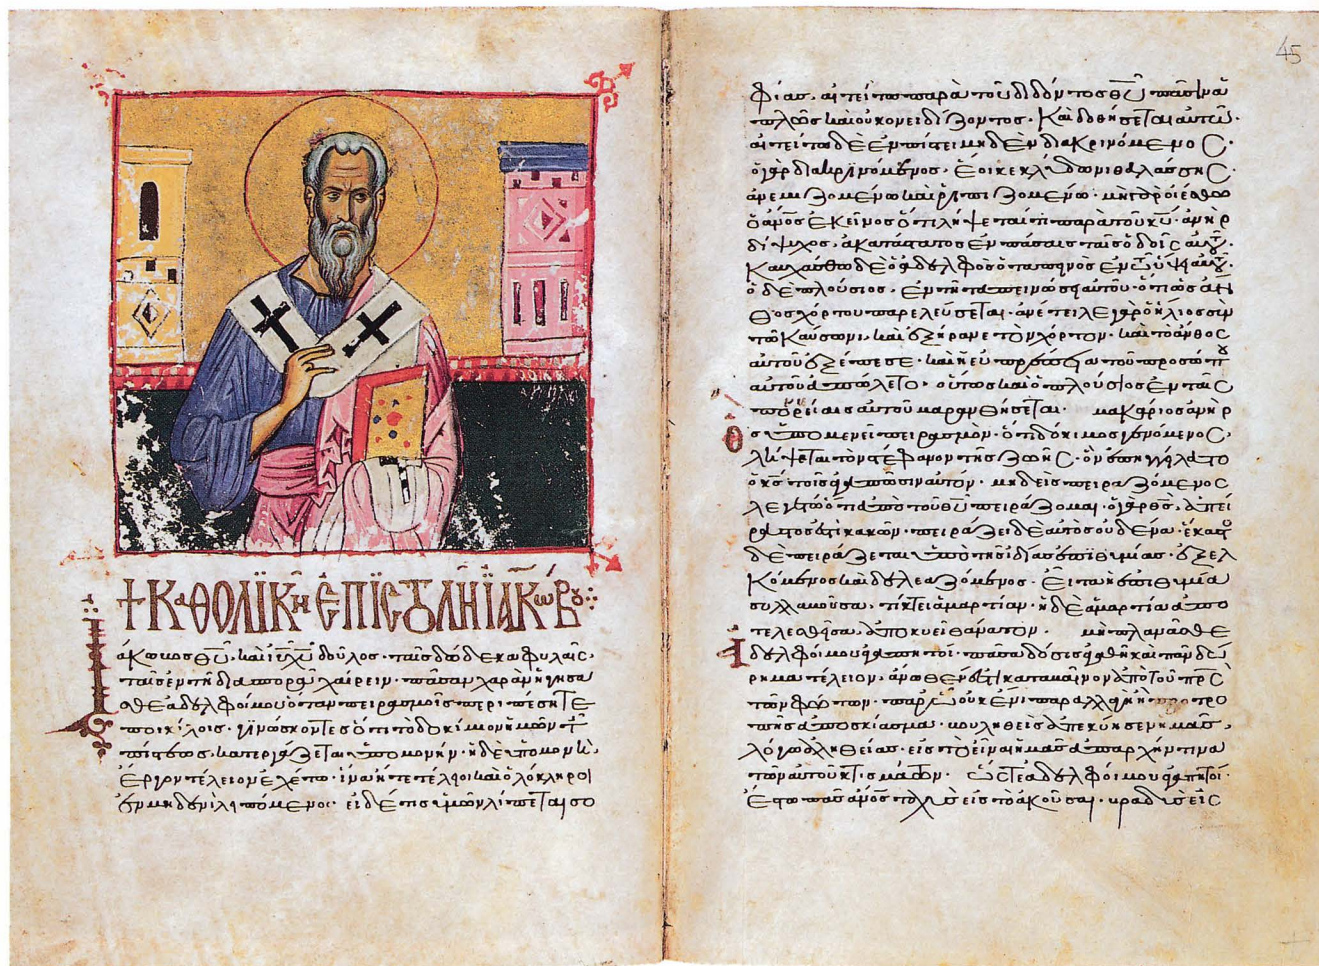 45
† ΚαθΟΛΙΚὴ ἘΠΙΣΤΟΛΗ ἸΑΚώΒου:
Ἰάκωβος θῦ, καὶ ιῦ χῦ δοῦλος· ταῖς δώδεκα φυλαῖς
ταῖς ἐν τῆ διασπορᾶ χαίρειν· πᾶσαν χαρὰν ἡγήσα
σθε ἀδελφοί μου ὅταν πειρασμοῖς περιπέσητε
ποικίλοις· γινώσκοντες ὅτι τὸ δοκίμιον ὑμῶν τῆς
πίστεως, κατεργάζεται ὑπομονήν· ἡ δὲ ὑπομονὴ,
ἔργον τέλειον ἐχέτω· ἵνα ἦτε τέλειοι καὶ ὁλόκληροι
ἐν μηδενὶ λειπόμενοι· εἰ δέ τις ὑμῶν λείπεται σο
φίας, αἰτείτω παρὰ τοῦ διδόντος θῦ πᾶσιν
ἁπλῶς καὶ οὐκ ὀνειδίζοντος· καὶ δοθήσεται αὐτῶ·
αἰτείτω δὲ ἐν πίστει μηδὲν διακρινόμενος·
ὁ γὰρ διακρινόμενος, ἔοικε κλύδωνι θαλάσσης·
ἀνεμιζομένω καὶ ῥιπιζομένω· μὴ γὰρ οἰέσθω
ὁ ἄνος ἐκεῖνος ὅτι λήψεταί τι παρὰ τοῦ κῦ· ἀνὴρ
δίψυχος, ἀκατάστατος ἐν πάσαις ταῖς ὁδοῖς αὐτοῦ·
καυχάσθω δὲ ὁ ἀδελφὸς ὁ ταπεινὸς ἐν τῶ ὕψει αὐτοῦ·
ὁ δὲ πλούσιος, ἐν τῆ ταπεινώσει αὐτοῦ· ὅτι ὡς ἄν
θος χόρτου παρελεύσεται· ἀνέτειλε γὰρ ὁ ἥλιος σὺν
τῶ καύσωνι, καὶ ἐξήρανε τὸν χόρτον· καὶ τὸ ἄνθος
αὐτοῦ ἐξέπεσε· καὶ ἡ εὐπρέπεια τοῦ προσώπου
αὐτοῦ ἀπώλετο· οὕτως καὶ ὁ πλούσιος ἐν ταῖς
πορείαις αὐτοῦ μαρανθήσεται· μακάριος ἀνὴρ
ὃς ὑπομένει πειρασμόν· ὅτι δόκιμος γενόμενος,
λήψεται τὸν στέφανον τῆς ζωῆς· ὃν ἐπηγγείλατο
ὁ κς τοῖς ἀγαπῶσιν αὐτόν· μηδεὶς πειραζόμενος
λεγέτω ὅτι ἀπὸ τοῦ θῦ πειράζομαι· ὁ γὰρ θς, ἀπεί
ραστός ἐστι κακῶν· πειράζει δὲ αὐτὸς οὐδένα· ἕκαστος
δὲ πειράζεται ὑπὸ τῆς ἰδίας ἐπιθυμίας· ἐξελ
κόμενος καὶ δελεαζόμενος· εἶτα ἡ ἐπιθυμία
συλλαβοῦσα, τίκτει ἁμαρτίαν· ἡ δὲ ἁμαρτία ἀπο
τελεσθεῖσα, ἀποκυεῖ θάνατον· μὴ πλανᾶσθε
ἀδελφοί μου ἀγαπητοί· πᾶσα δόσις ἀγαθὴ καὶ πᾶν δώ
ρημα τέλειον, ἄνωθέν ἐστι καταβαῖνον ἀπὸ τοῦ πρς
τῶν φώτων· παρ' ὧ οὐκ ἔνι παραλλαγὴ ἢ τρο
πῆς ἀποσκίασμα· βουληθεὶς ἀπεκύησεν ἡμᾶς,
λόγω ἀληθείας· εἰς τὸ εἶναι ἡμᾶς ἀπαρχήν τινα
τῶν αὐτοῦ κτισμάτων· ὥστε ἀδελφοί μου ἀγαπητοί·
ἔστω πᾶς ἄνος ταχὺς εἰς τὸ ἀκοῦσαι· βραδὺς εἰς